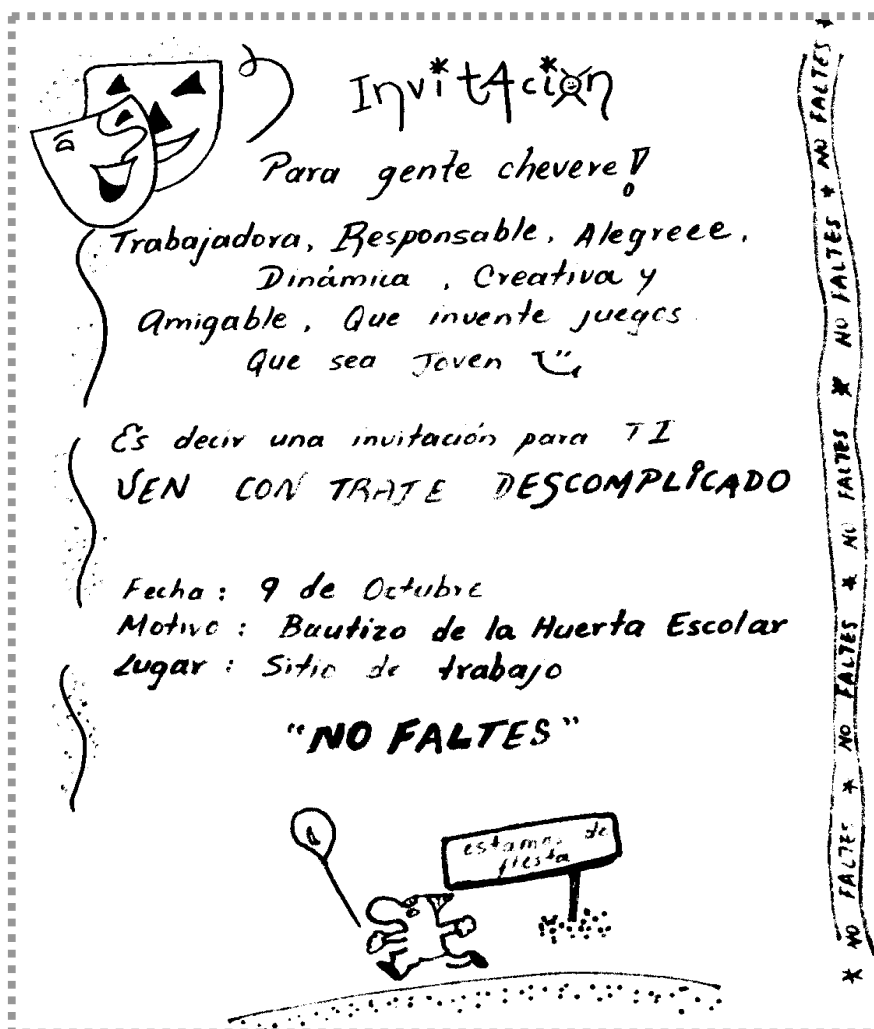 Invit4ción
Para gente chevere!
Trabajadora, Responsable, Alegreee,
Dinámica, Creativa y
Amigable, Que invente juegos
Que sea Joven
Es decir una invitación para TI
VEN CON TRAJE DESCOMPLICADO
Fecha: 9 de Octubre
Motivo: Bautizo de la Huerta Escolar
Lugar: Sitio de trabajo
"NO FALTES"
estamos de
fiesta
* NO FALTES * NO FALTES * NO FALTES * NO FALTES * NO FALTES *